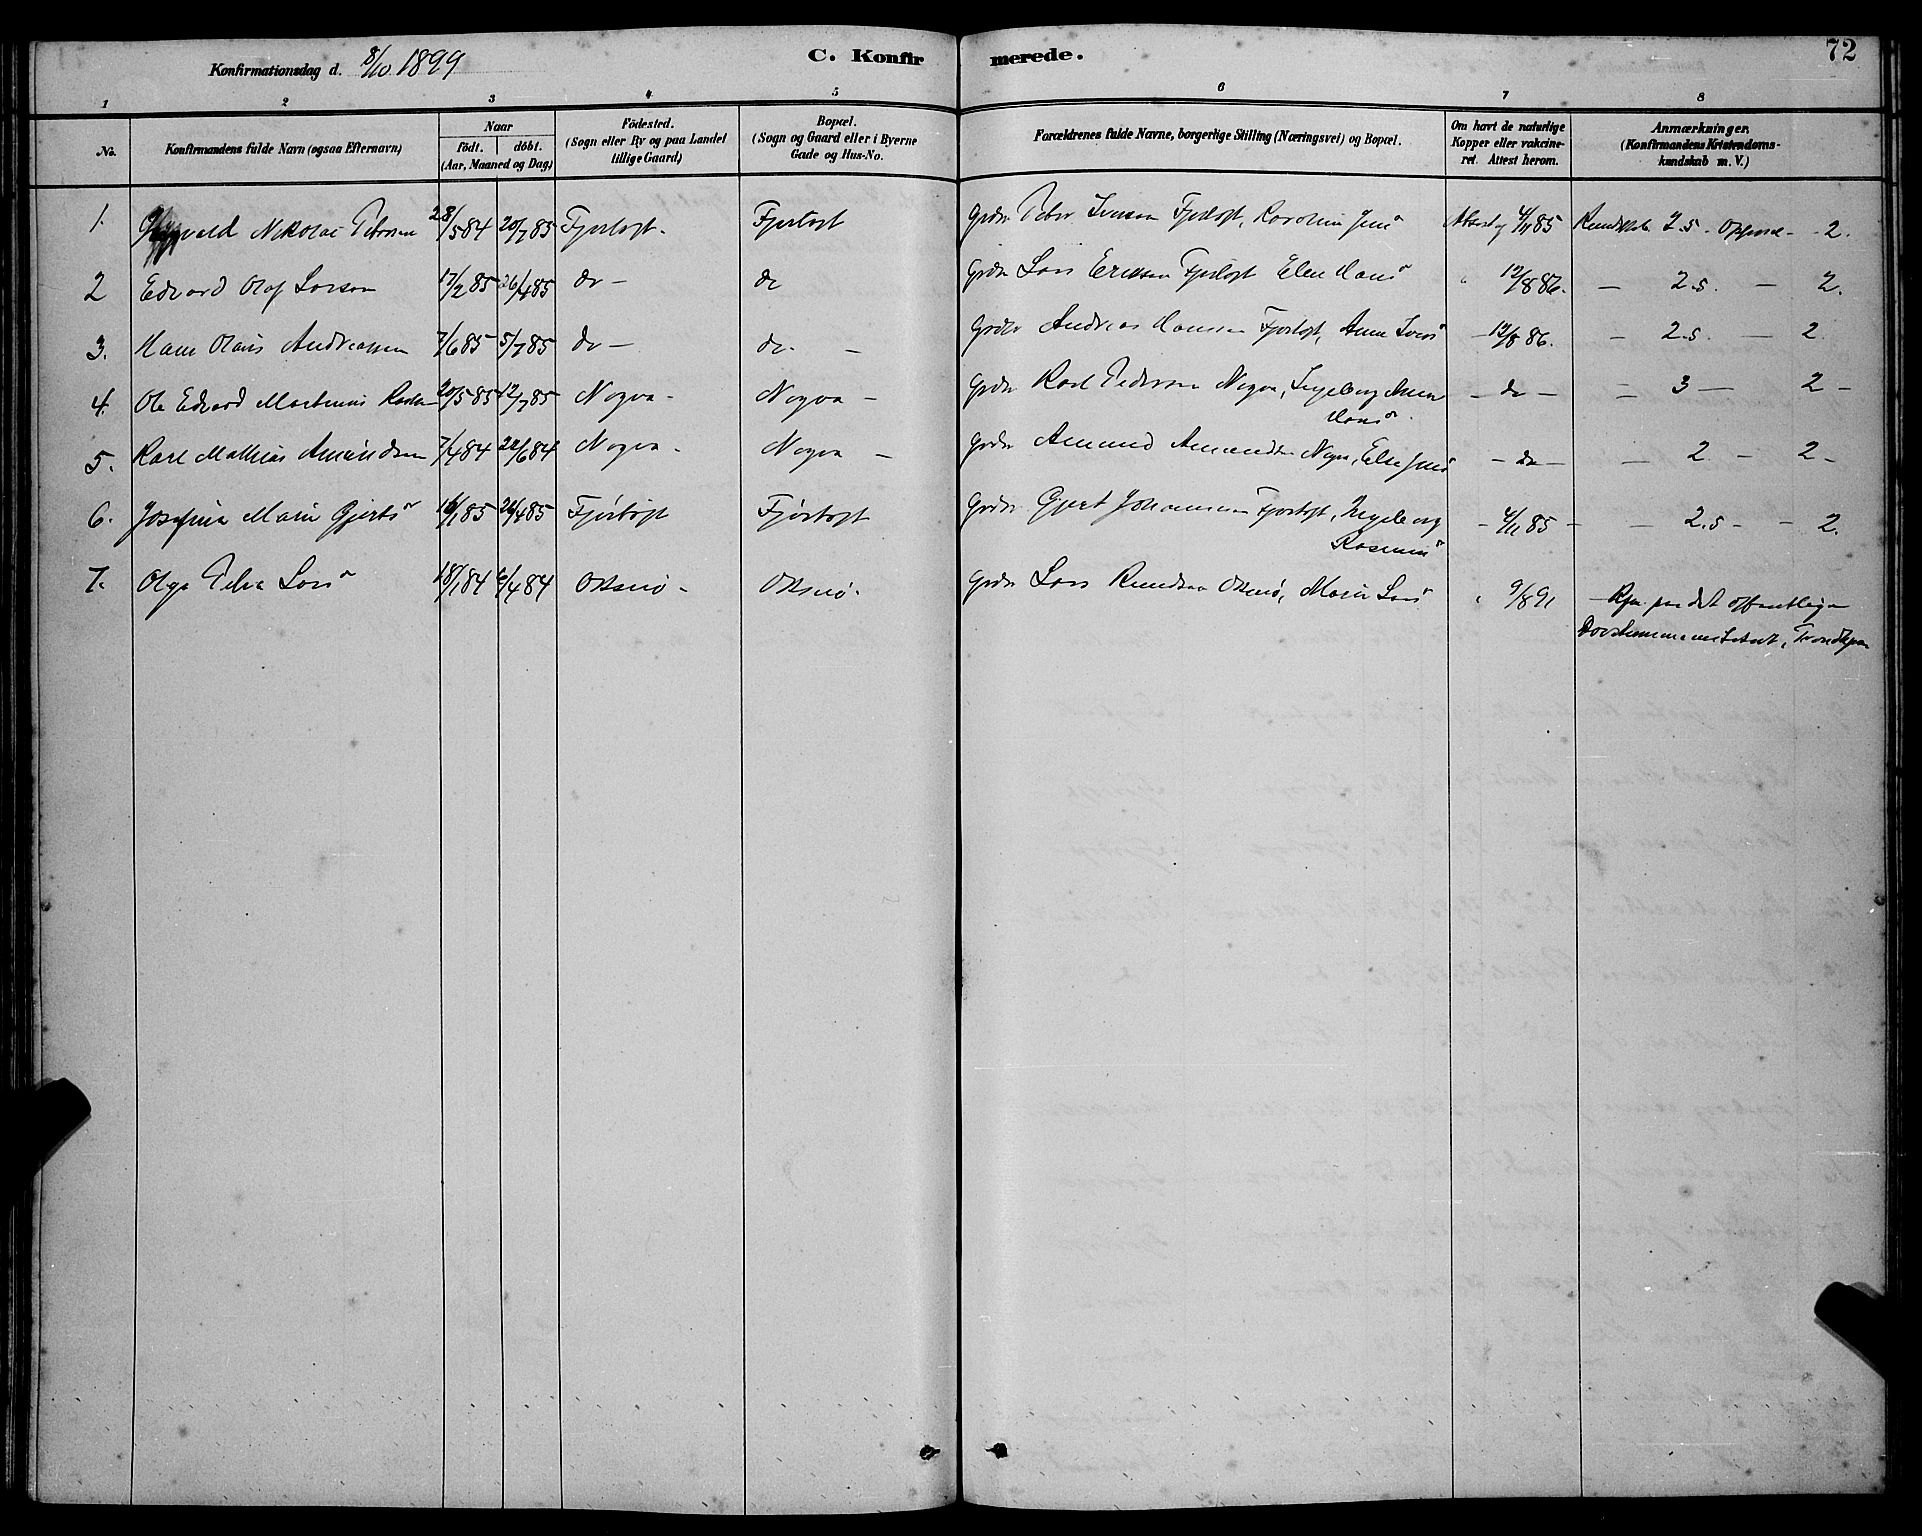 Konfirmationsdag d. 8/10 1899
C. Konfirmerede.
72
1 2 3 4 5 6 7 8
No.
Konfirmandens fulde Navn (ogsaa Efternavn)
Naar
födt. döbt.
(Aar, Maaned og Dag)
Födested.
(Sogn eller By og paa Landet
tillige Gaard)
Bopæl.
(Sogn og Gaard eller i Byerne
Gade og Hus-No.
Forældrenes fulde Navne, borgerlige Stilling (Næringsvei) og Bopæl.
Om havt de naturlige
Kopper eller vakcine-
ret. Attest herom.
Anmærkninger.
(Konfirmandens Kristendoms-
kundskab m. V.)
1. Nikolai Petersen 28/5 84 20/7 85 Fjørtoft - Fjørtoft Grdbr Peder Iversen Fjørtoft, Karoline Jens Attest af 4/11 85 Kundskab 2.5 - Opførsel - 2.
2 Edvard Olaf Larsen 17/2 85 26/4 85 do - do Grdbr Lars Eriksen Fjørtoft Elen Hans " 12/8 86. - 2.5. - 2.
3. Hans Olaus Andreassen 7/6 85 5/7 85 do - do - Grdbr Andreas Hansen Fjørtoft, Anne Ivers - 12/8 86. - 2.5. - 2
4. Ole Edvard Martinius Karls 20/5 85 12/7 85 Nogva - Nogva - Grdbr Karl Pedersen Nogva, Ingeborg Anne
Hans - do - - 3 - 2 -
5. Karl Mathias Amundsen 7/4 84 22/6 84 Nogva - Nogva - Grdbr Amund Amundsen Nogva, Else Jens - do - - 2 - 2 -
6. Josefine Marie Gjerts 16/1 85 26/4 85 Fjørtoft Fjørtoft Grdbr Gjert Johannessen Fjørtoft, Ingeborg
Rasmus - 4/11 85 - - 2.5 - - 2.
7. Olga Petra Lars 18/1 84 6/4 84 Oksnø - Oksnø. Grdbr Lars Knudsen Oksnø, Marie Lars " 9/8 91 - Kfm. paa det offentlige
Døvstummeinstitut, Trondhjem